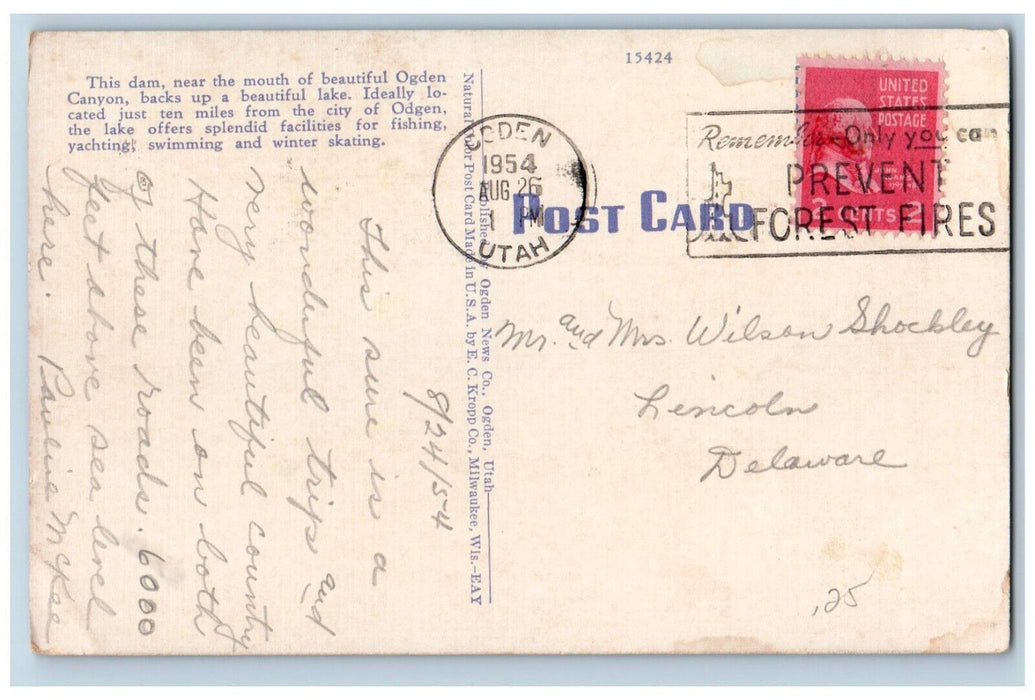 This dam, near the mouth of beautiful Ogden
Canyon, backs up a beautiful lake. Ideally lo-
cated just ten miles from the city of Odgen,
the lake offers splendid facilities for fishing,
yachting, swimming and winter skating.
15424
UNITED
STATES
POSTAGE
CENTS 2
OGDEN
1954
AUG 26
1 PM
UTAH
Remember Only you can
PREVENT
FOREST FIRES
POST CARD
Published by Ogden News Co., Ogden, Utah
Natural Color Post Card Made in U.S.A. by E. C. Kropp Co., Milwaukee, Wis.-EAY
8/24/54
This sure is a
wonderful trips and
very beautiful country
Have been on both
of these roads. 6000
feet above sea level
here. Pauline McKee
Mr. and Mrs. Wilson Shockley
Lincoln
Delaware
.25